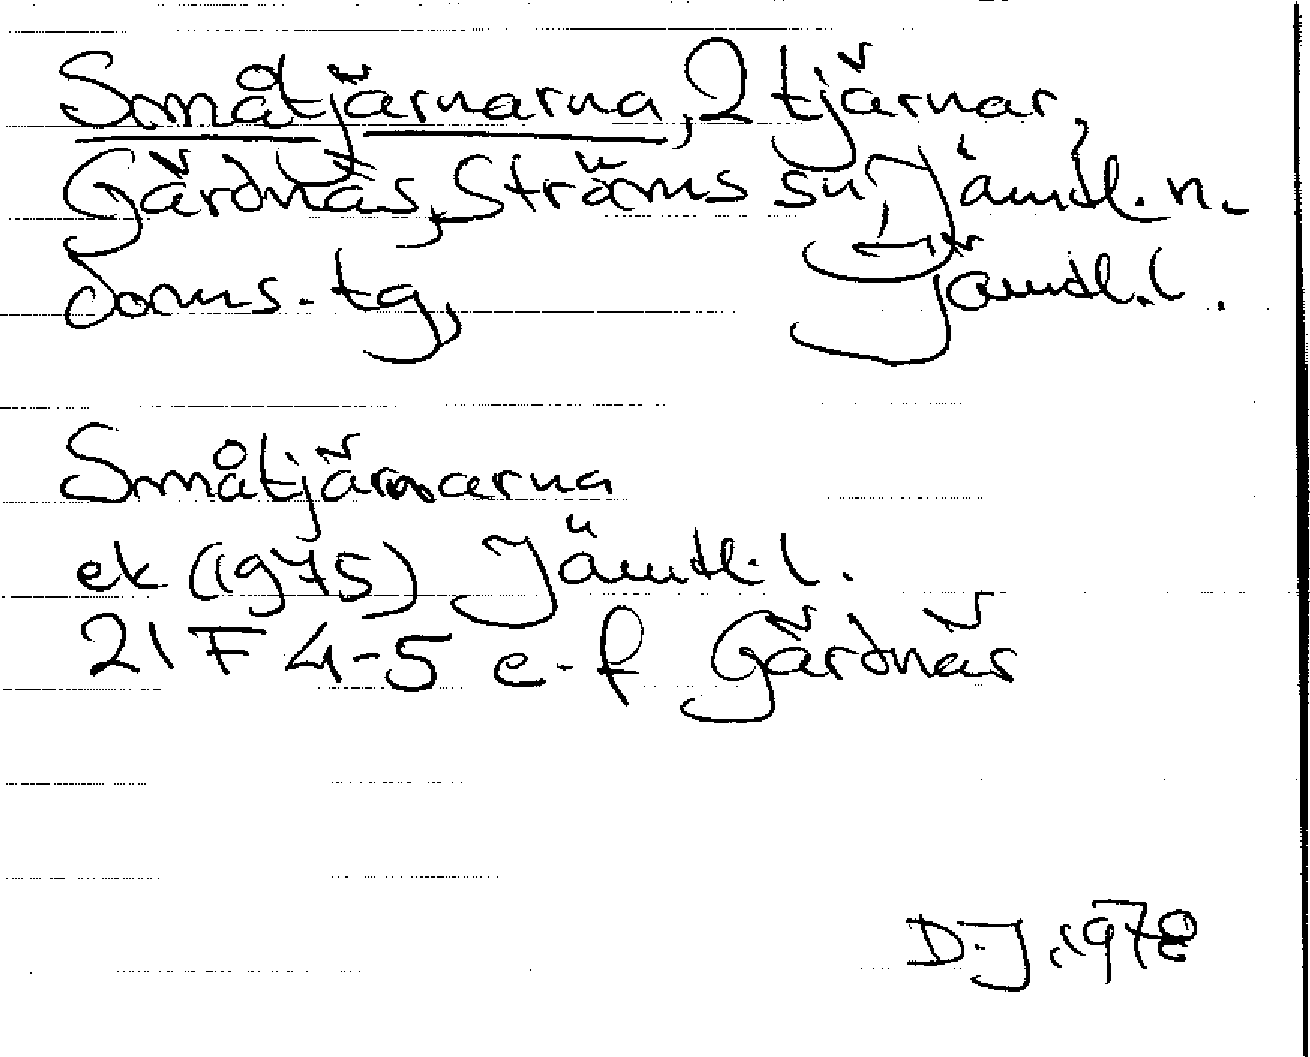 Småtjärnarna, 2 tjärnar,
Gärdnäs, Ströms sn, Jämtl. n.
doms.-tg, Jämtl. l.
Småtjärnarna
ek (1975) Jämtl. l.
21 F 4-5 e-f Gärdnäs
D.J. 1978